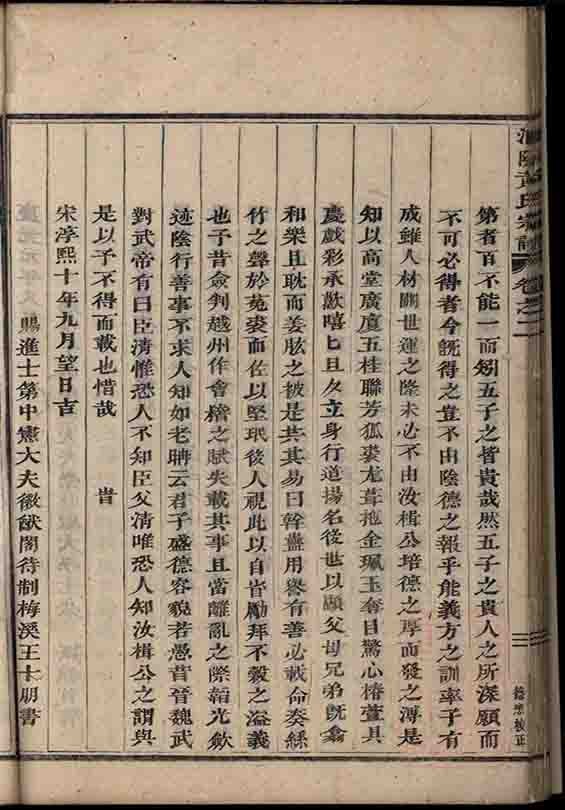 黄氏宗譜 卷之二
第者百不能一而矧五子之皆貴哉然五子之貴人之所深願而
不可必得者今旣得之豈不由陰德之報乎能義方之訓率子有
成雖人材關世運之隆未必不由汝楫公培德之厚而發之溥是
知以高堂廣廈五桂聯芳狐裘尨茸拖金珮玉奪目驚心椿萱具
慶戲彩承歡嘻匕旦夕立身行道揚名後世以顯父母兄弟旣翕
和樂且耽而姜肱之被是共其易曰幹蠱用譽有善必載命奏絲
竹之聲於菟裘而佐以堅珉後人視此以自省勵拜不穀之溢義
也予昔僉判越州作會稽之賦失載其事且當離亂之際韜光歛
迹陰行善事不求人知如老聃云君子盛德容貌若愚昔晉魏武
對武帝有曰臣清惟恐人不知臣父清唯恐人知汝楫公之謂與
是以予不得而載也惜哉 旹
宋淳熙十年九月望日吉
賜進士第中憲大夫徽猷閣待制梅溪王十朋書
校正